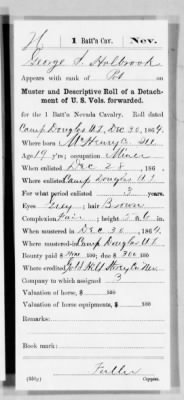 H | 1 Batt's Cav. | Nev.
George S. Holbrook
Appears with rank of Pvt on
Muster and Descriptive Roll of a Detach-
ment of U. S. Vols. forwarded.
for the 1 Batt's Nevada Cavalry. Roll dated
Camp Douglas U.T., Dec 30, 1864.
Where born McHenry Co Ill
Age 19 y'rs; occupation Miner
When enlisted Dec 28, 186 .
Where enlisted Camp Douglas U.T.
For what period enlisted 3 years.
Eyes Grey; hair Brown
Complexion Fair; height 5 ft. 6 in.
When mustered in Dec 30, 1864.
Where mustered in Camp Douglas U.T.
Bounty paid $ 100; due $ 300 100
Where credited Gold Hill Storey Co Nev.
Company to which assigned
Valuation of horse, $ 100
Valuation of horse equipments, $ 100
Remarks:
Book mark:
Fuller
Copyist.